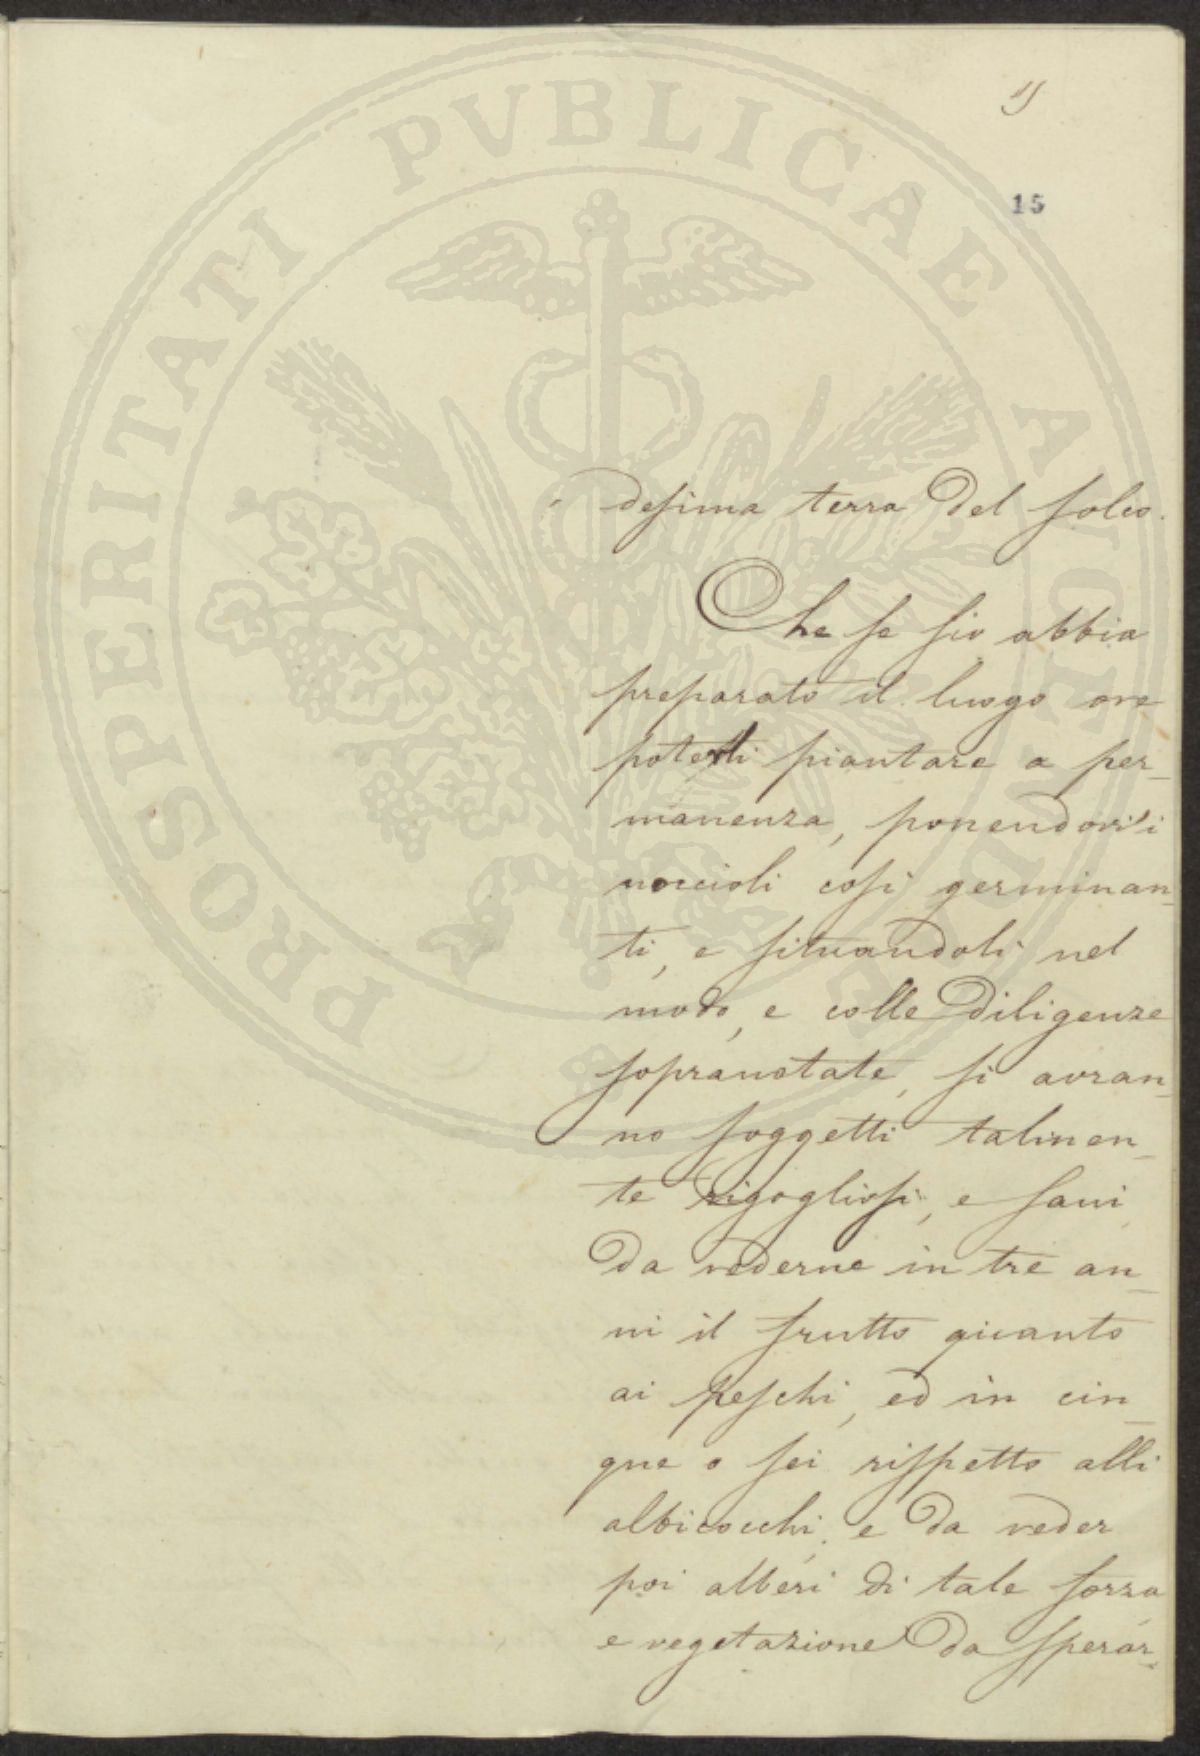 15
desima terra del solco.
Che se siv abbia
preparato il luogo ove
potersi piantare a per-
manenza, ponendovi i
noccioli cosi germinan-
ti, e situandoli nel
modo, e colle diligenze
sopranotate, si avran-
no soggetti talmen-
te rigogliosi, e sani
da vederne in tre an-
ni il frutto quanto
ai peschi, ed in cin-
que o sei rispetto alli
albicocchi, e da veder
poi alberi di tale forza
e vegetazione da sperar-
PROSPERITATI PVBLICAE AVGENDAE